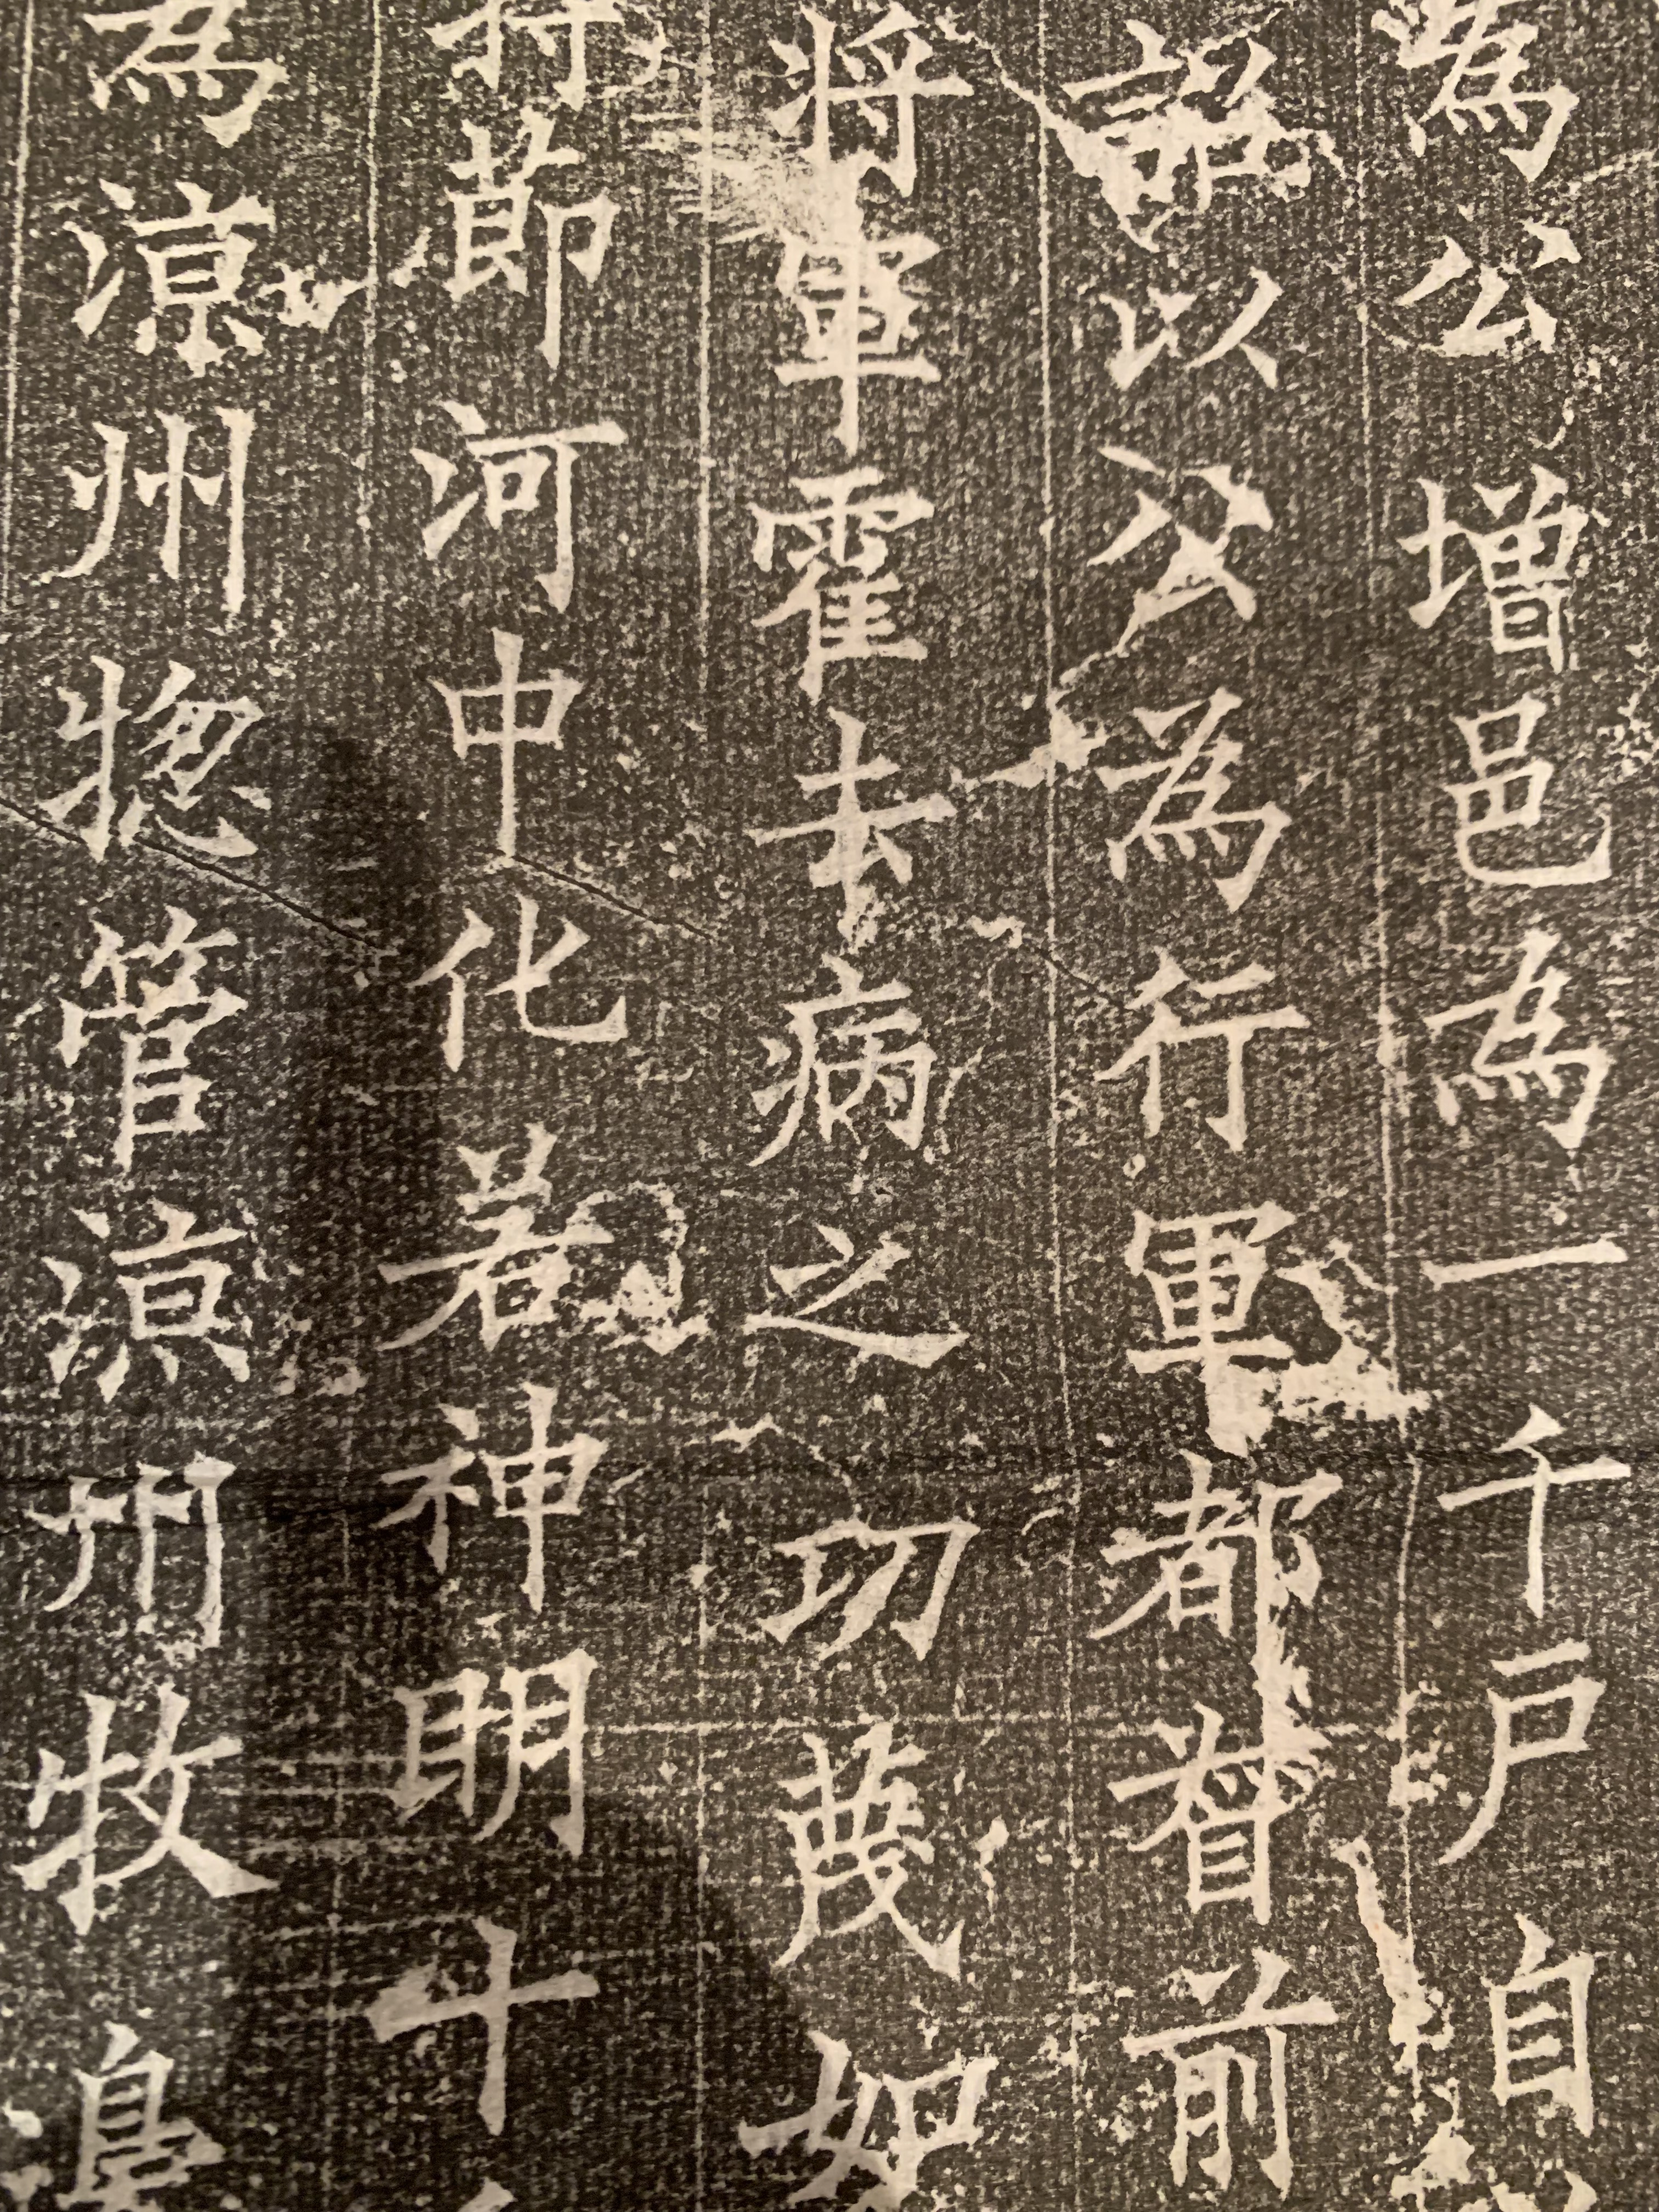 為公增邑為一千戶自
詔以公為行軍都督前
將軍霍去病之功蔑如
持節河中化若神明十
為涼州惣管涼州牧